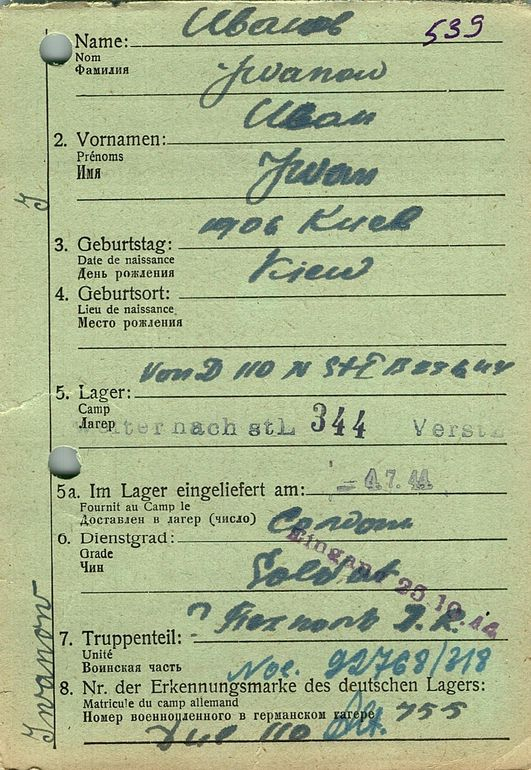 Иванов
539
Name:
Nom
Фамилия
Jwanow
Иван
2. Vornamen:
Prénoms
Имя
Jwan
1906 Киев
3. Geburtstag:
Date de naissance
День рождения
Kiew
4. Geburtsort:
Lieu de naissance
Место рождения
Von D 110 N St
5. Lager:
Camp
Лагер
weiter nach stL 344 Verst
5a. Im Lager eingeliefert am: - 4.7.44
Fournit au Camp le
Доставлен в лагер (число)
6. Dienstgrad:
Grade
Чин
Soldat
Eingang 25.10.44
J.R.
7. Truppenteil:
Unité
Воинская часть
22768/318
8. Nr. der Erkennungsmarke des deutschen Lagers:
Matricule du camp allemand
Номер военнопленного в германском лагере 755
110
J
Jwanow